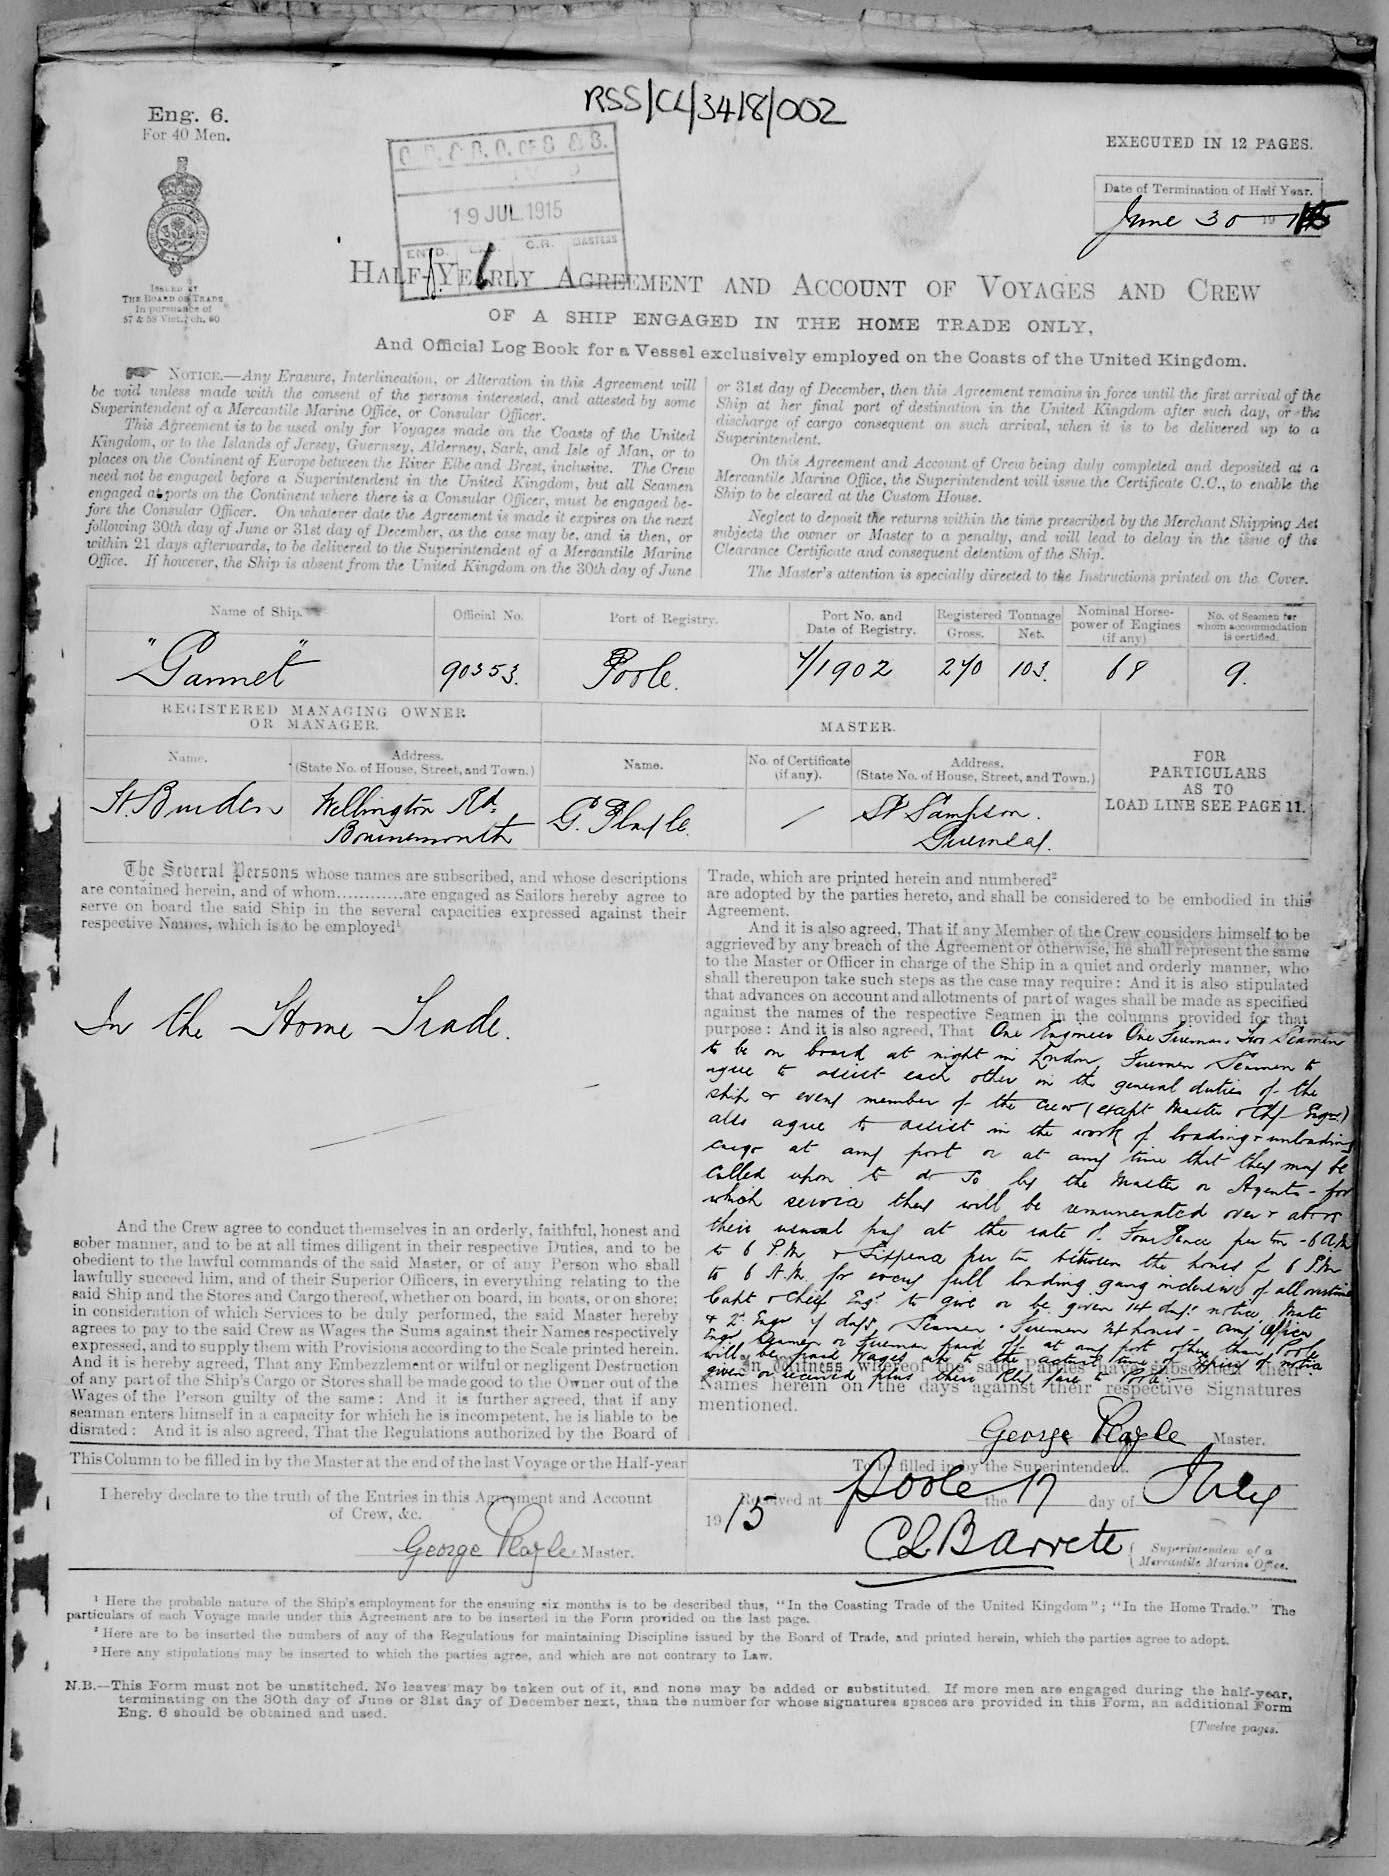 RSS/CL/3418/002
Eng. 6.
For 40 Men.
EXECUTED IN 12 PAGES.
Date of Termination of Half Year.
June 30 1915
19 JUL. 1915
ENTD.
C.R.
MASTERS
ISSUED BY
THE BOARD OF TRADE
In pursuance of
57 & 58 Vict., ch. 60
HALF-YEARLY AGREEMENT AND ACCOUNT OF VOYAGES AND CREW
OF A SHIP ENGAGED IN THE HOME TRADE ONLY,
And Official Log Book for a Vessel exclusively employed on the Coasts of the United Kingdom.
NOTICE.—Any Erasure, Interlineation, or Alteration in this Agreement will
be void unless made with the consent of the persons interested, and attested by some
Superintendent of a Mercantile Marine Office, or Consular Officer.
This Agreement is to be used only for Voyages made on the Coasts of the United
Kingdom, or to the Islands of Jersey, Guernsey, Alderney, Sark, and Isle of Man, or to
places on the Continent of Europe between the River Elbe and Brest, inclusive. The Crew
need not be engaged before a Superintendent in the United Kingdom, but all Seamen
engaged at ports on the Continent where there is a Consular Officer, must be engaged be-
fore the Consular Officer. On whatever date the Agreement is made it expires on the next
following 30th day of June or 31st day of December, as the case may be, and is then, or
within 21 days afterwards, to be delivered to the Superintendent of a Mercantile Marine
Office. If however, the Ship is absent from the United Kingdom on the 30th day of June
or 31st day of December, then this Agreement remains in force until the first arrival of the
Ship at her final port of destination in the United Kingdom after such day, or the
discharge of cargo consequent on such arrival, when it is to be delivered up to a
Superintendent.
On this Agreement and Account of Crew being duly completed and deposited at a
Mercantile Marine Office, the Superintendent will issue the Certificate C.C., to enable the
Ship to be cleared at the Custom House.
Neglect to deposit the returns within the time prescribed by the Merchant Shipping Act
subjects the owner or Master to a penalty, and will lead to delay in the issue of the
Clearance Certificate and consequent detention of the Ship.
The Master's attention is specially directed to the Instructions printed on the Cover.
Name of Ship. Official No. Port of Registry. Port No. and Date of Registry. Registered Tonnage Gross. Net. Nominal Horse-power of Engines (if any) No. of Seamen for whom accommodation is certified.
"Gannet" 90353. Poole. 4/1902 270 103. 68 9.
REGISTERED MANAGING OWNER OR MANAGER.
MASTER.
Name. Address. (State No. of House, Street, and Town.) Name. No. of Certificate (if any). Address. (State No. of House, Street, and Town.)
FOR
PARTICULARS
AS TO
LOAD LINE SEE PAGE 11.
H. Burden Wellington Rd. Bournemouth G. Playle / St Sampson. Guernsey.
The Several Persons whose names are subscribed, and whose descriptions
are contained herein, and of whom............are engaged as Sailors hereby agree to
serve on board the said Ship in the several capacities expressed against their
respective Names, which is to be employed¹
In the Home Trade.
And the Crew agree to conduct themselves in an orderly, faithful, honest and
sober manner, and to be at all times diligent in their respective Duties, and to be
obedient to the lawful commands of the said Master, or of any Person who shall
lawfully succeed him, and of their Superior Officers, in everything relating to the
said Ship and the Stores and Cargo thereof, whether on board, in boats, or on shore;
in consideration of which Services to be duly performed, the said Master hereby
agrees to pay to the said Crew as Wages the Sums against their Names respectively
expressed, and to supply them with Provisions according to the Scale printed herein.
And it is hereby agreed, That any Embezzlement or wilful or negligent Destruction
of any part of the Ship's Cargo or Stores shall be made good to the Owner out of the
Wages of the Person guilty of the same: And it is further agreed, that if any
seaman enters himself in a capacity for which he is incompetent, he is liable to be
disrated: And it is also agreed, That the Regulations authorized by the Board of
Trade, which are printed herein and numbered²
are adopted by the parties hereto, and shall be considered to be embodied in this
Agreement.
And it is also agreed, That if any Member of the Crew considers himself to be
aggrieved by any breach of the Agreement or otherwise, he shall represent the same
to the Master or Officer in charge of the Ship in a quiet and orderly manner, who
shall thereupon take such steps as the case may require: And it is also stipulated
that advances on account and allotments of part of wages shall be made as specified
against the names of the respective Seamen in the columns provided for that
purpose: And it is also agreed, That One Engineer One Fireman, Two Seamen
to be on board at night in London, Firemen Seamen to
agree to assist each other in the general duties of the
ship & every member of the crew (except Master & Chf Engr.)
also agree to assist in the work of loading & unloading
cargo at any port or at any time that they may be
called upon to do so by the Master or Agents - for
which service they will be remunerated over & above
their usual pay at the rate of Four Pence per ton - 6 A.M
to 6 P.M & Sixpence per ton between the hours of 6 P.M
to 6 A.M. for every full loading gang inclusive of all overtime
Capt & Chief Engr to give or be given 14 days notice, Mate
& 2 Engr 7 days, Seamen & Firemen 24 hours - any Officer
Engr Seamen or Firemen paid off at any port other than Poole
will be paid wages up to the actual time of expiry of notice
given or received plus their Rly fare to Poole.
In Witness whereof the said Parties have subscribed their
Names herein on the days against their respective Signatures
mentioned.
George Playle Master.
This Column to be filled in by the Master at the end of the last Voyage or the Half-year
I hereby declare to the truth of the Entries in this Agreement and Account
of Crew, &c.
George Playle Master.
To be filled in by the Superintendent.
Received at Poole the 17 day of July
1915
C L Barrete Superintendent of a Mercantile Marine Office.
¹ Here the probable nature of the Ship's employment for the ensuing six months is to be described thus, "In the Coasting Trade of the United Kingdom"; "In the Home Trade." The
particulars of each Voyage made under this Agreement are to be inserted in the Form provided on the last page.
² Here are to be inserted the numbers of any of the Regulations for maintaining Discipline issued by the Board of Trade, and printed herein, which the parties agree to adopt.
³ Here any stipulations may be inserted to which the parties agree, and which are not contrary to Law.
N.B.—This Form must not be unstitched. No leaves may be taken out of it, and none may be added or substituted. If more men are engaged during the half-year,
terminating on the 30th day of June or 31st day of December next, than the number for whose signatures spaces are provided in this Form, an additional Form
Eng. 6 should be obtained and used.
[Twelve pages.